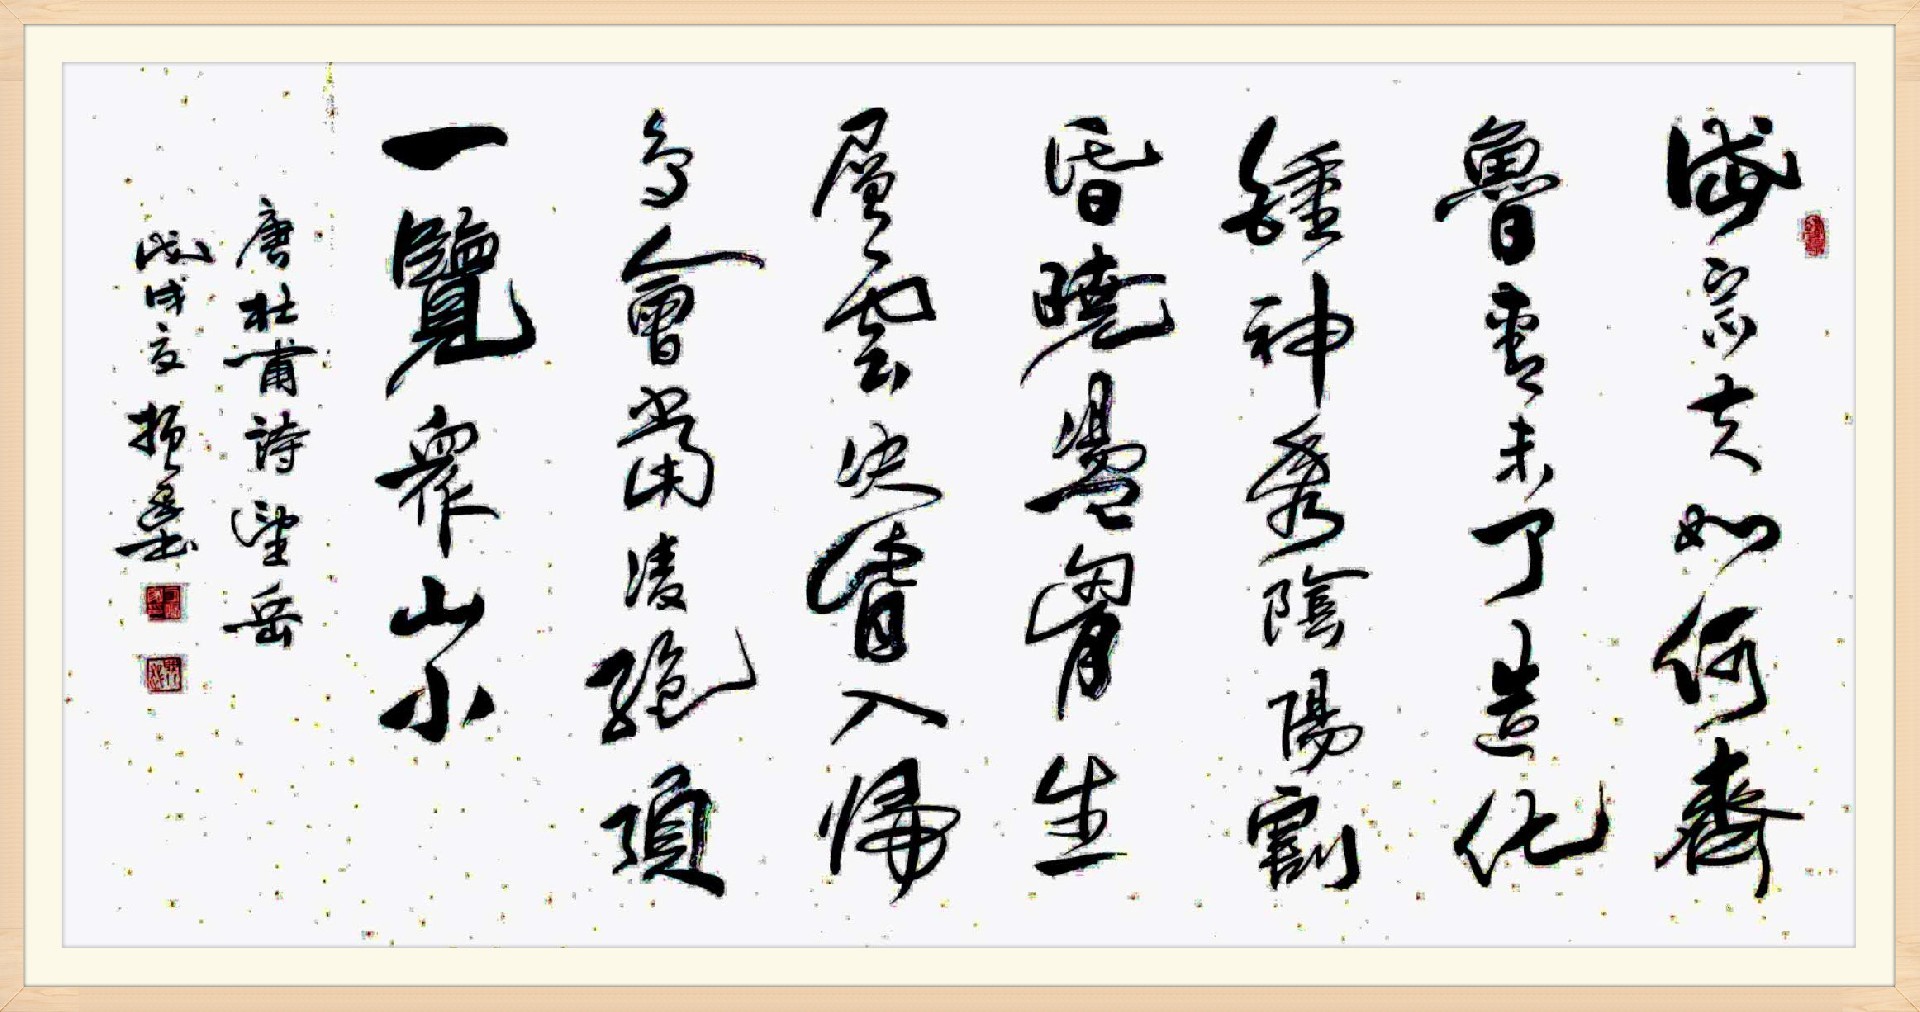 岱宗夫如何齊
魯青未了造化
鍾神秀陰陽割
昏曉盪胸生
層雲決眥入歸
鳥會當凌絕頂
一覽眾山小
唐杜甫詩望岳
戊戌夏振